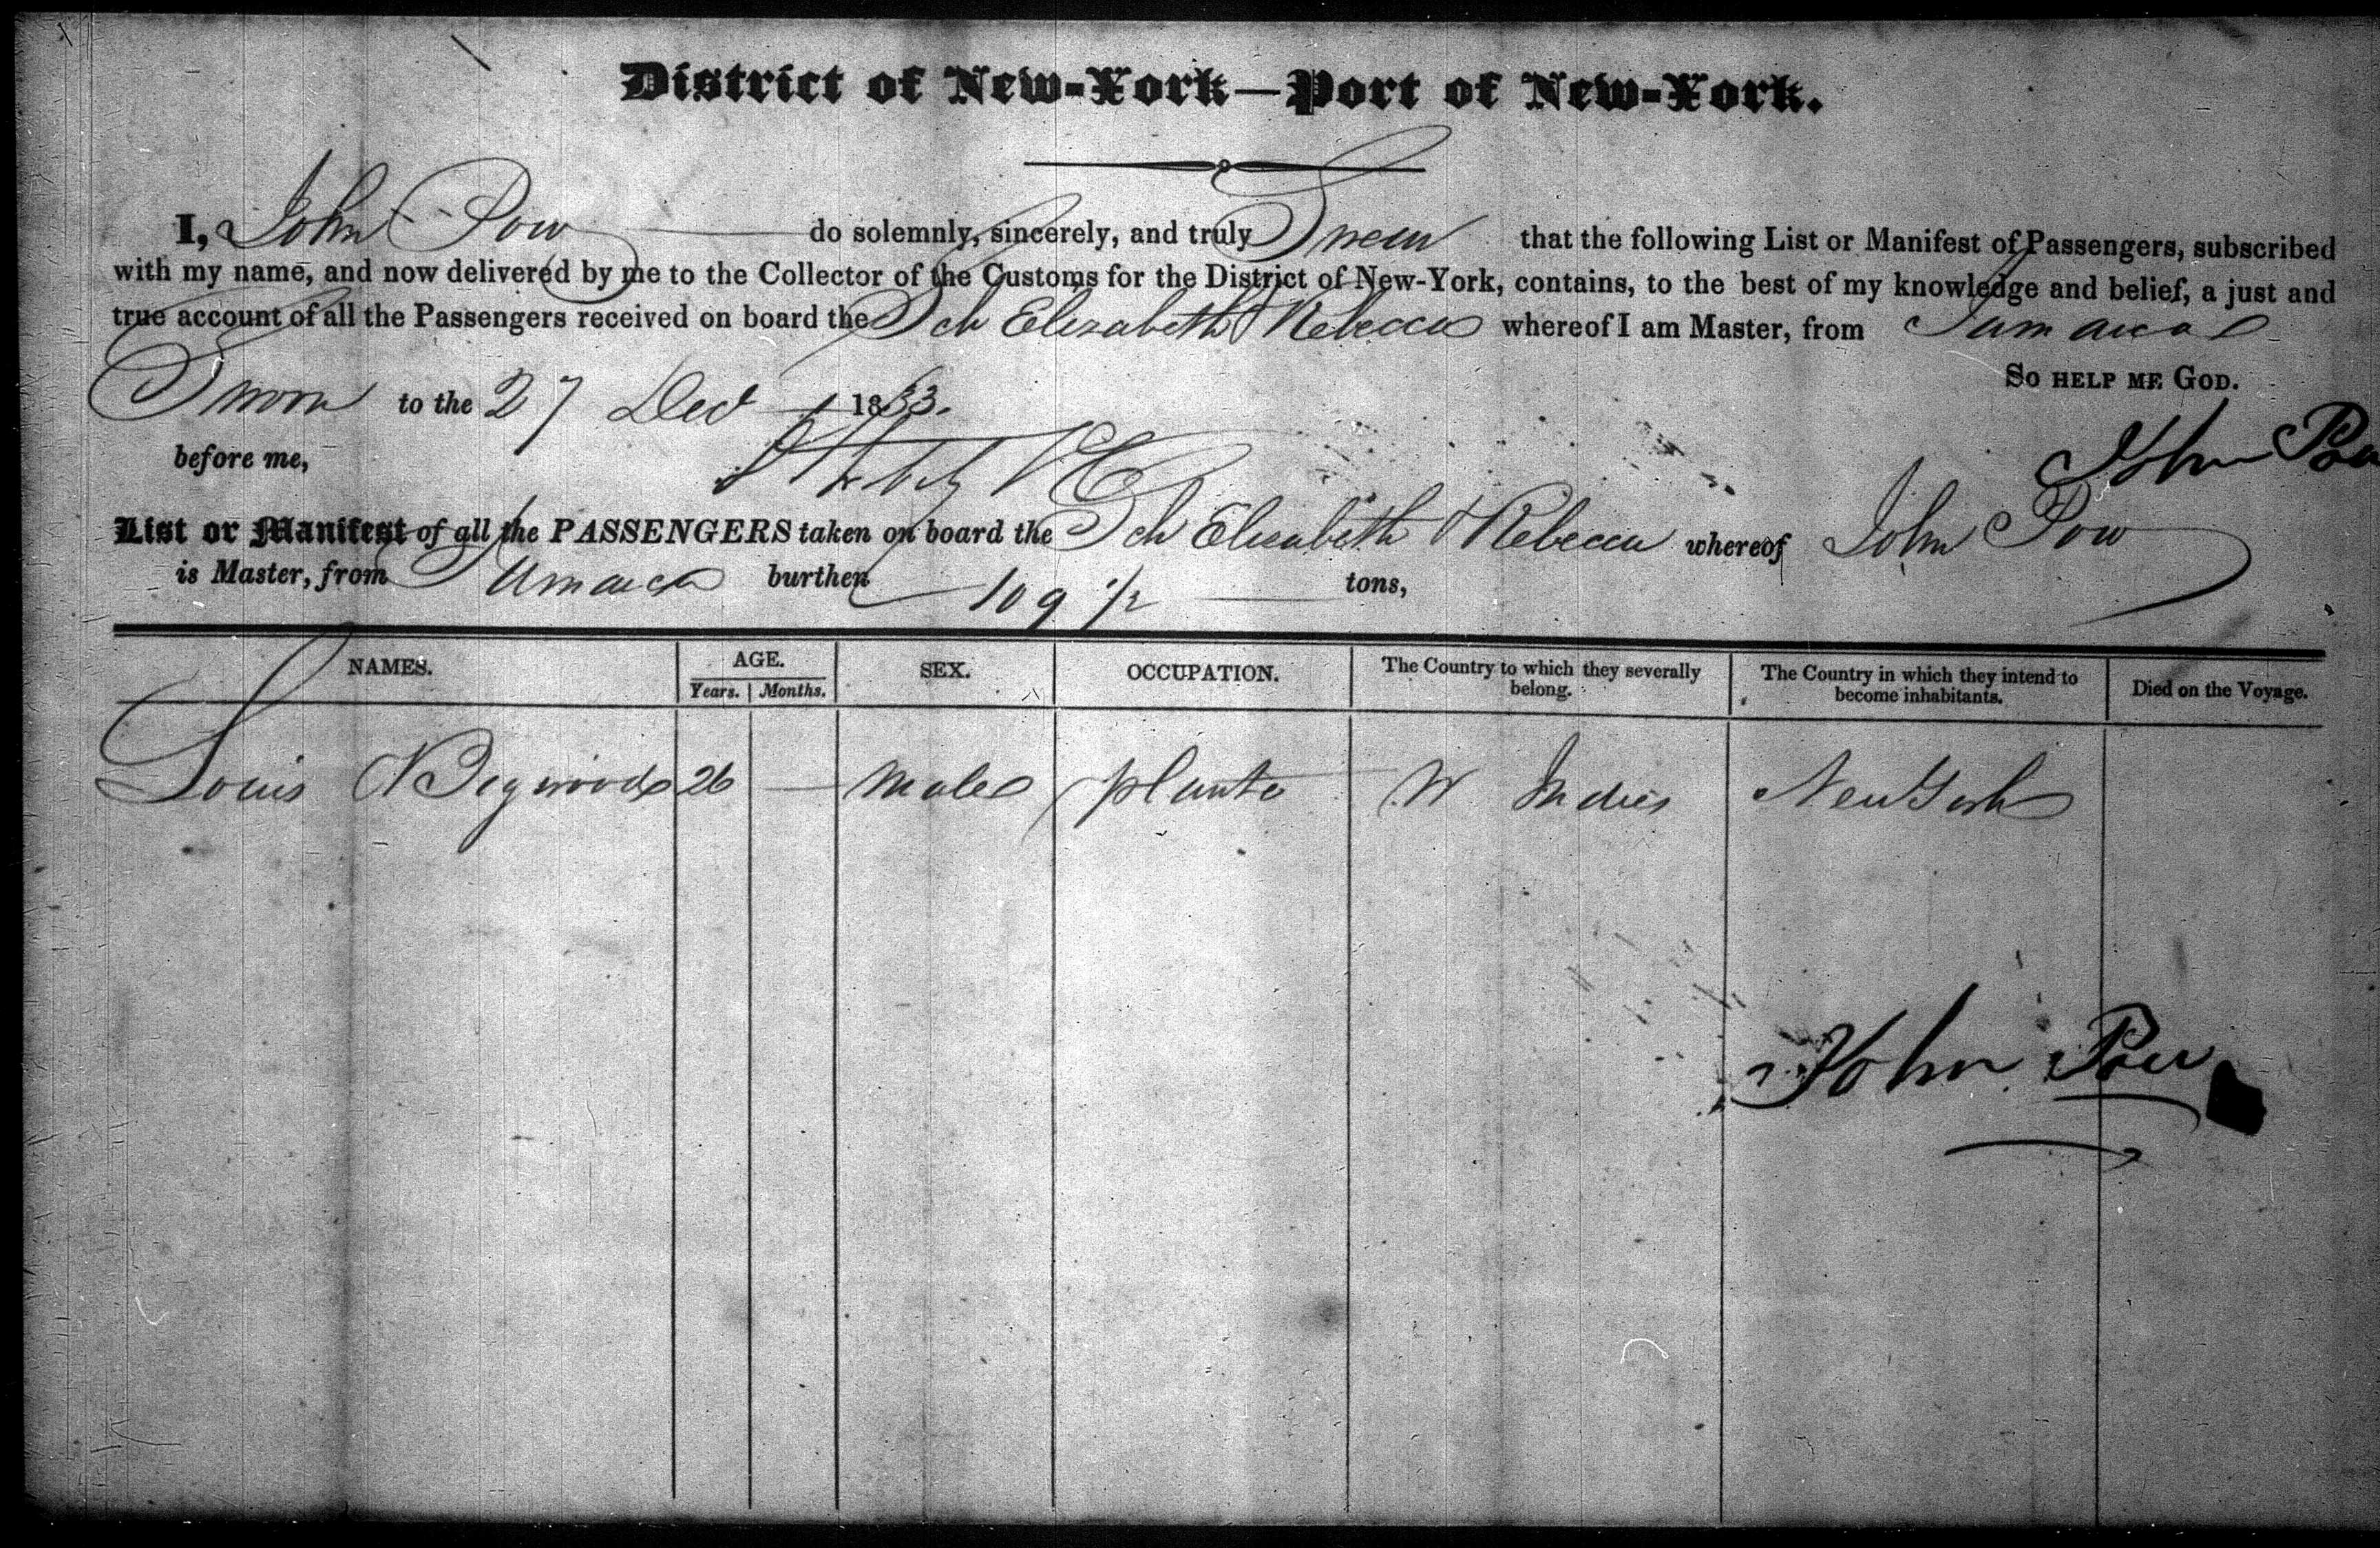 District of New-York—Port of New-York.
I, John Pow do solemnly, sincerely, and truly Swear that the following List or Manifest of Passengers, subscribed
with my name, and now delivered by me to the Collector of the Customs for the District of New-York, contains, to the best of my knowledge and belief, a just and
true account of all the Passengers received on board the Sch Elizabeth & Rebecca whereof I am Master, from Jamaica
So help me God.
Sworn to the 27 Dec 1833.
John Pow
before me,
List or Manifest of all the PASSENGERS taken on board the Sch Elizabeth & Rebecca whereof John Pow
is Master, from Jamaica burthen 109 1/2 tons,
NAMES. AGE. Years. Months. SEX. OCCUPATION. The Country to which they severally belong. The Country in which they intend to become inhabitants. Died on the Voyage.
Louis 26 — Male W Indies New York
John Pow